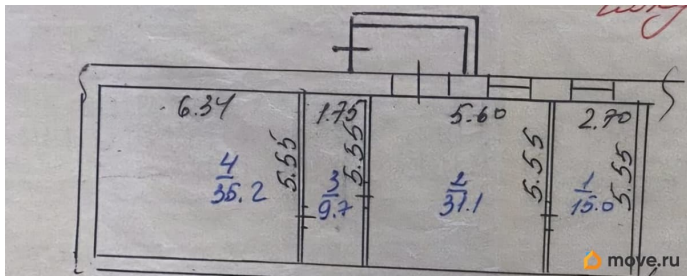 6.34 1.75 5.60 2.70
5.55 5.55 5.55 5.55
4 3 2 1
35.2 9.7 31.1 15.0
move.ru